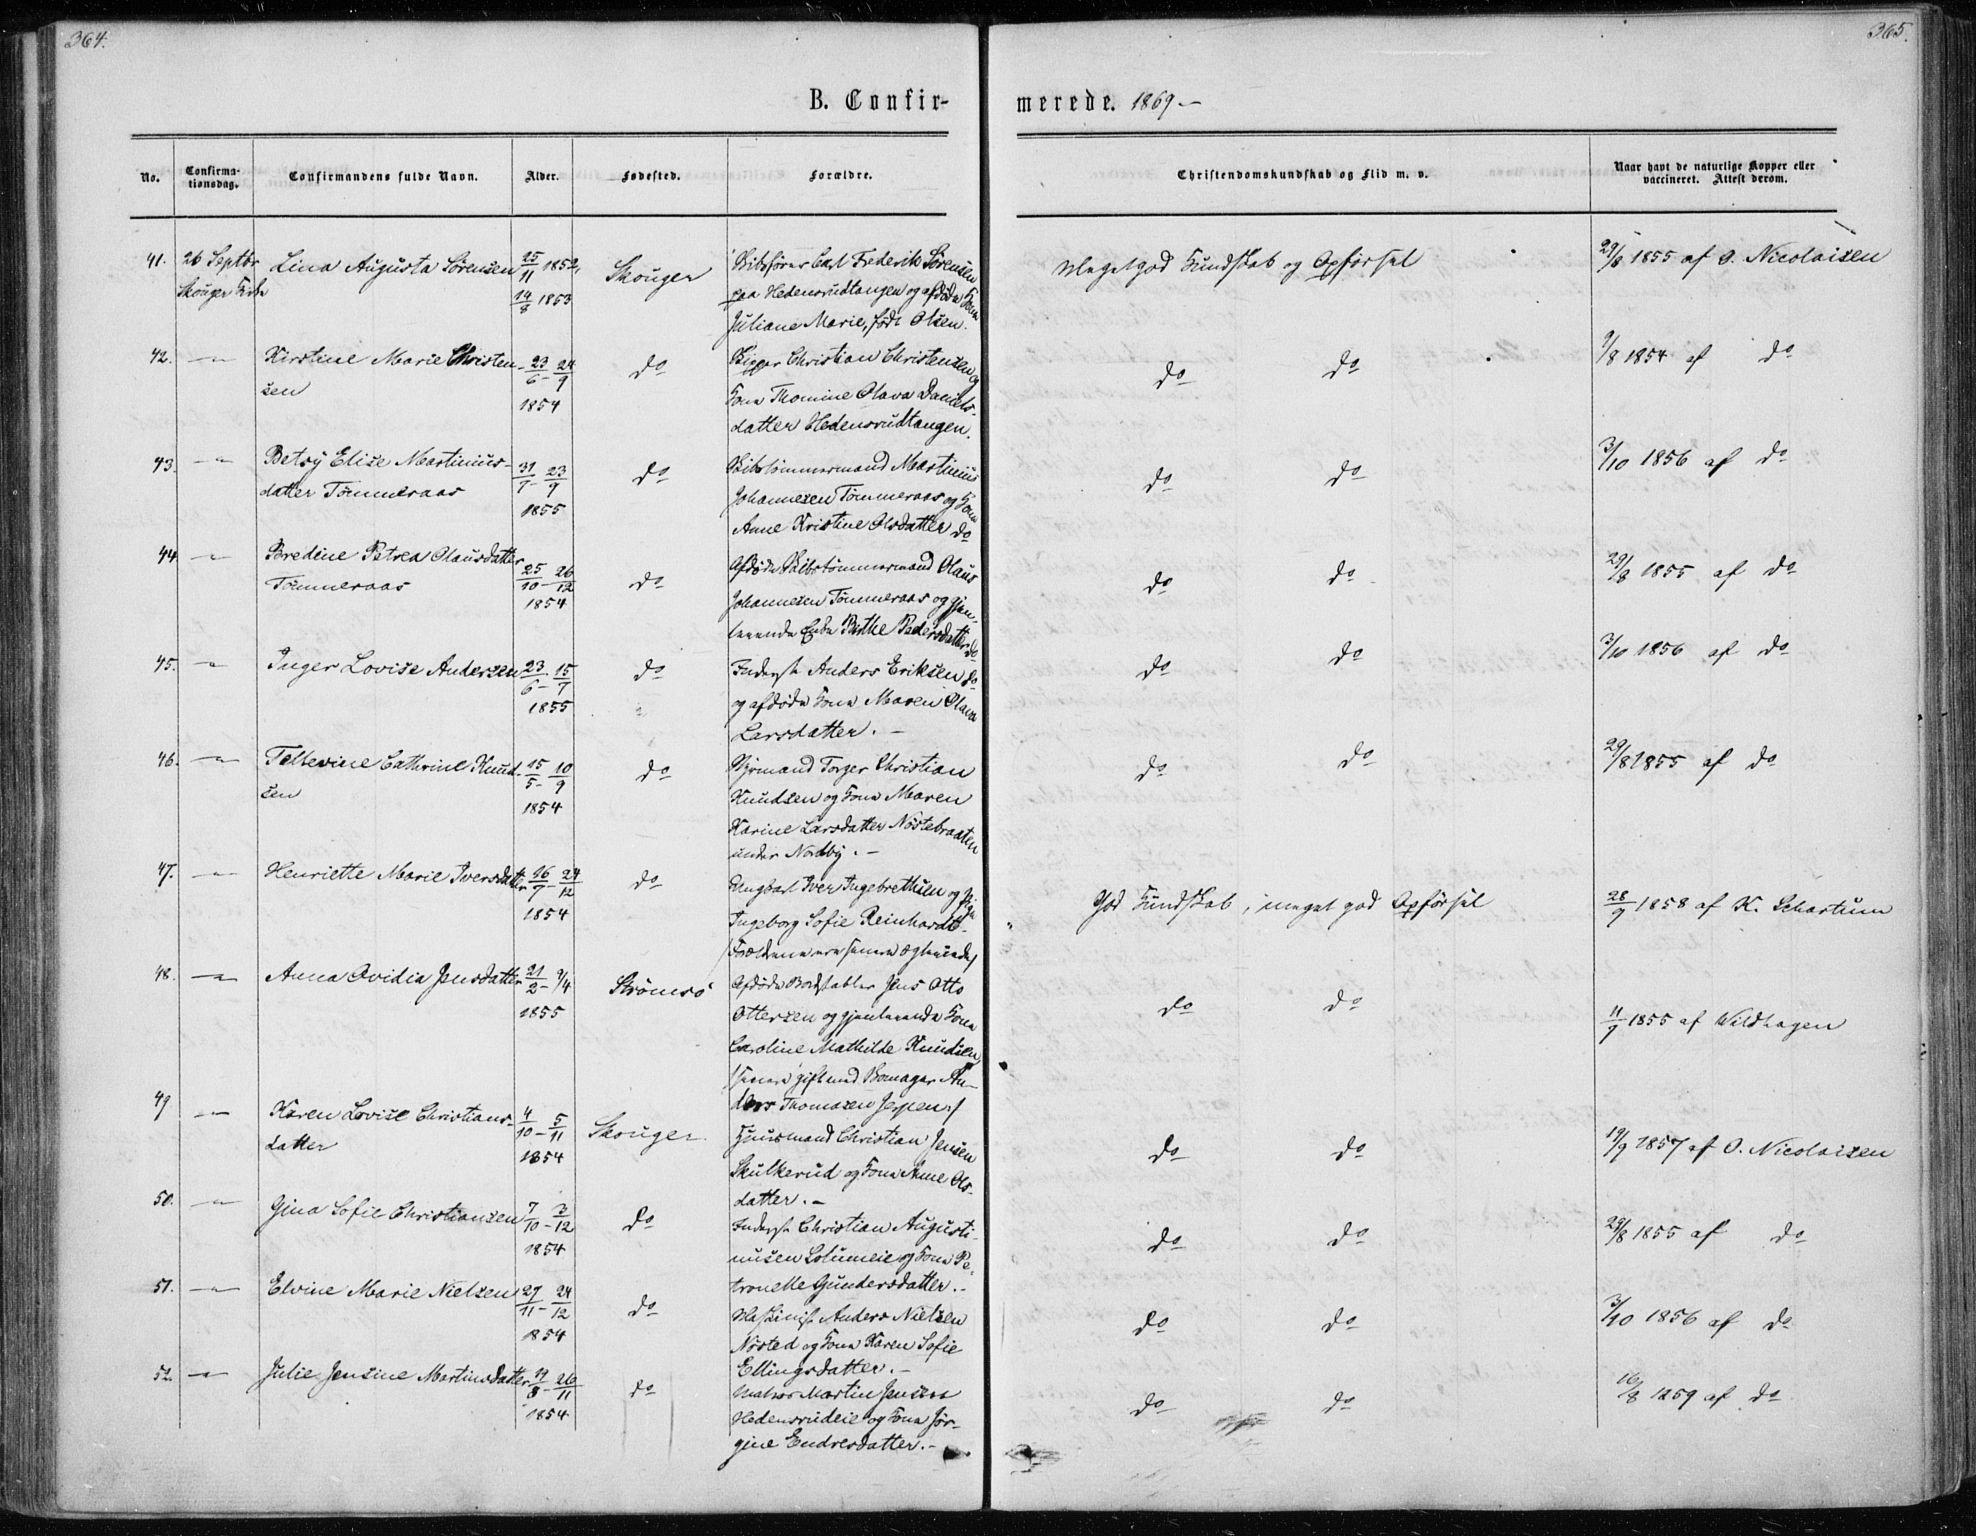 364.
365.
B. Confir-
merede. 1869 –
No.
Confirma-
tionsdag.
Confirmandens fulde Navn.
Alder.
Fødested.
Forældre.
Christendomskundskab og Flid m. v.
Naar havt de naturlige Kopper eller
vaccineret. Attest derom.
41. 26 Septbr Lina Augusta Sørensen 25/11 1852, Skouger Skibsfører Carl Frederik Sørensen Megetgod Kundskab og Opførsel 29/8 1855 af O. Nicolaisen
Skouger Kirke 14/8 1853 paa Hedensrudtangen og afdøde Kone
Juliane Marie, født Olsen.
42. –"– Kirstine Marie Christen- 23/6 – 24/9 do Christian Christensen og do do 9/8 1854 af do
sen 1854 Kone Thomine Olava Daniels-
datter Hedensrudtangen.
43. –"– Betsy Elise Martinius- 31/7 – 23/9 do Skibstømmermand Martinius do do 3/10 1856 af do
datter Tømmeraas 1855 Johannesen Tømmeraas og Kone
Anne Kristine Olsdatter do
44. –"– Bredine Petrea Olausdatter 25/10 – 26/12 do Afdøde Skibstømmermand Olaus do do 29/8 1855 af do
Tømmeraas 1854 Johannesen Tømmeraas og gjen-
levende Enke Birthe Pedersdatter do
45. –"– Inger Lovise Andersen 23/6 – 15/7 do Inderst Anders Eriksen do do do 3/10 1856 af do
1855 og afdøde Kone Maren Olava
Larsdatter. –
46. –"– Tellevine Cathrine Knud- 15/5 – 10/9 do Styrmand Torger Christian do do 29/8 1855 af do
sen 1854 Knudsen og Kone Maren
Karine Larsdatter Nøstebraaten
under Nordby. –
47. –"– Henriette Marie Iversdatter 16/7 – 24/12 do Ungkarl Iver Ingebrethsen og Pige God Kundskab, meget god Opførsel 28/9 1858 af K. Schartum
1854 Ingeborg Sofie Reinhardt-
/Forældrene ere senere egteviede/
48. –"– Anna Ovidia Jensdatter 21/2 – 9/4 Strømsø Afdøde Bordstabler Jens Otto do do 11/7 1855 af Wildhagen
1855 Ottersen og gjenlevende Kone
Caroline Mathilde Knudsen,
/senere gift med Anders
Thomasen Jerpen./
49 –"– Karen Lovise Christians- 4/10 – 5/11 Skouger Huusmand Christian Jensen do do 19/9 1857 af O. Nicolaisen
datter 1854 Skulkerud og Kone Anne Ols-
datter. –
50. –"– Gina Sofie Christiansen 7/10 – 3/12 do Inderst Christian Augusti- do do 29/8 1855 af do
1854 nusen Solumeie og Kone Pe-
tronelle Gundersdatter. –
51. –"– Elvine Marie Nielsen 27/11 – 24/12 do Maskinist Anders Nielsen do do 3/10 1856 af do
1854 Nøsted og Kone Karen Sofie
Ellingsdatter. –
52. –"– Julie Jensine Martinsdatter 26/11 do Matros Martin Jensen do do 16/8 1859 af do
1854 Hedensrudeie og Kone Jør-
gine Endresdatter. –